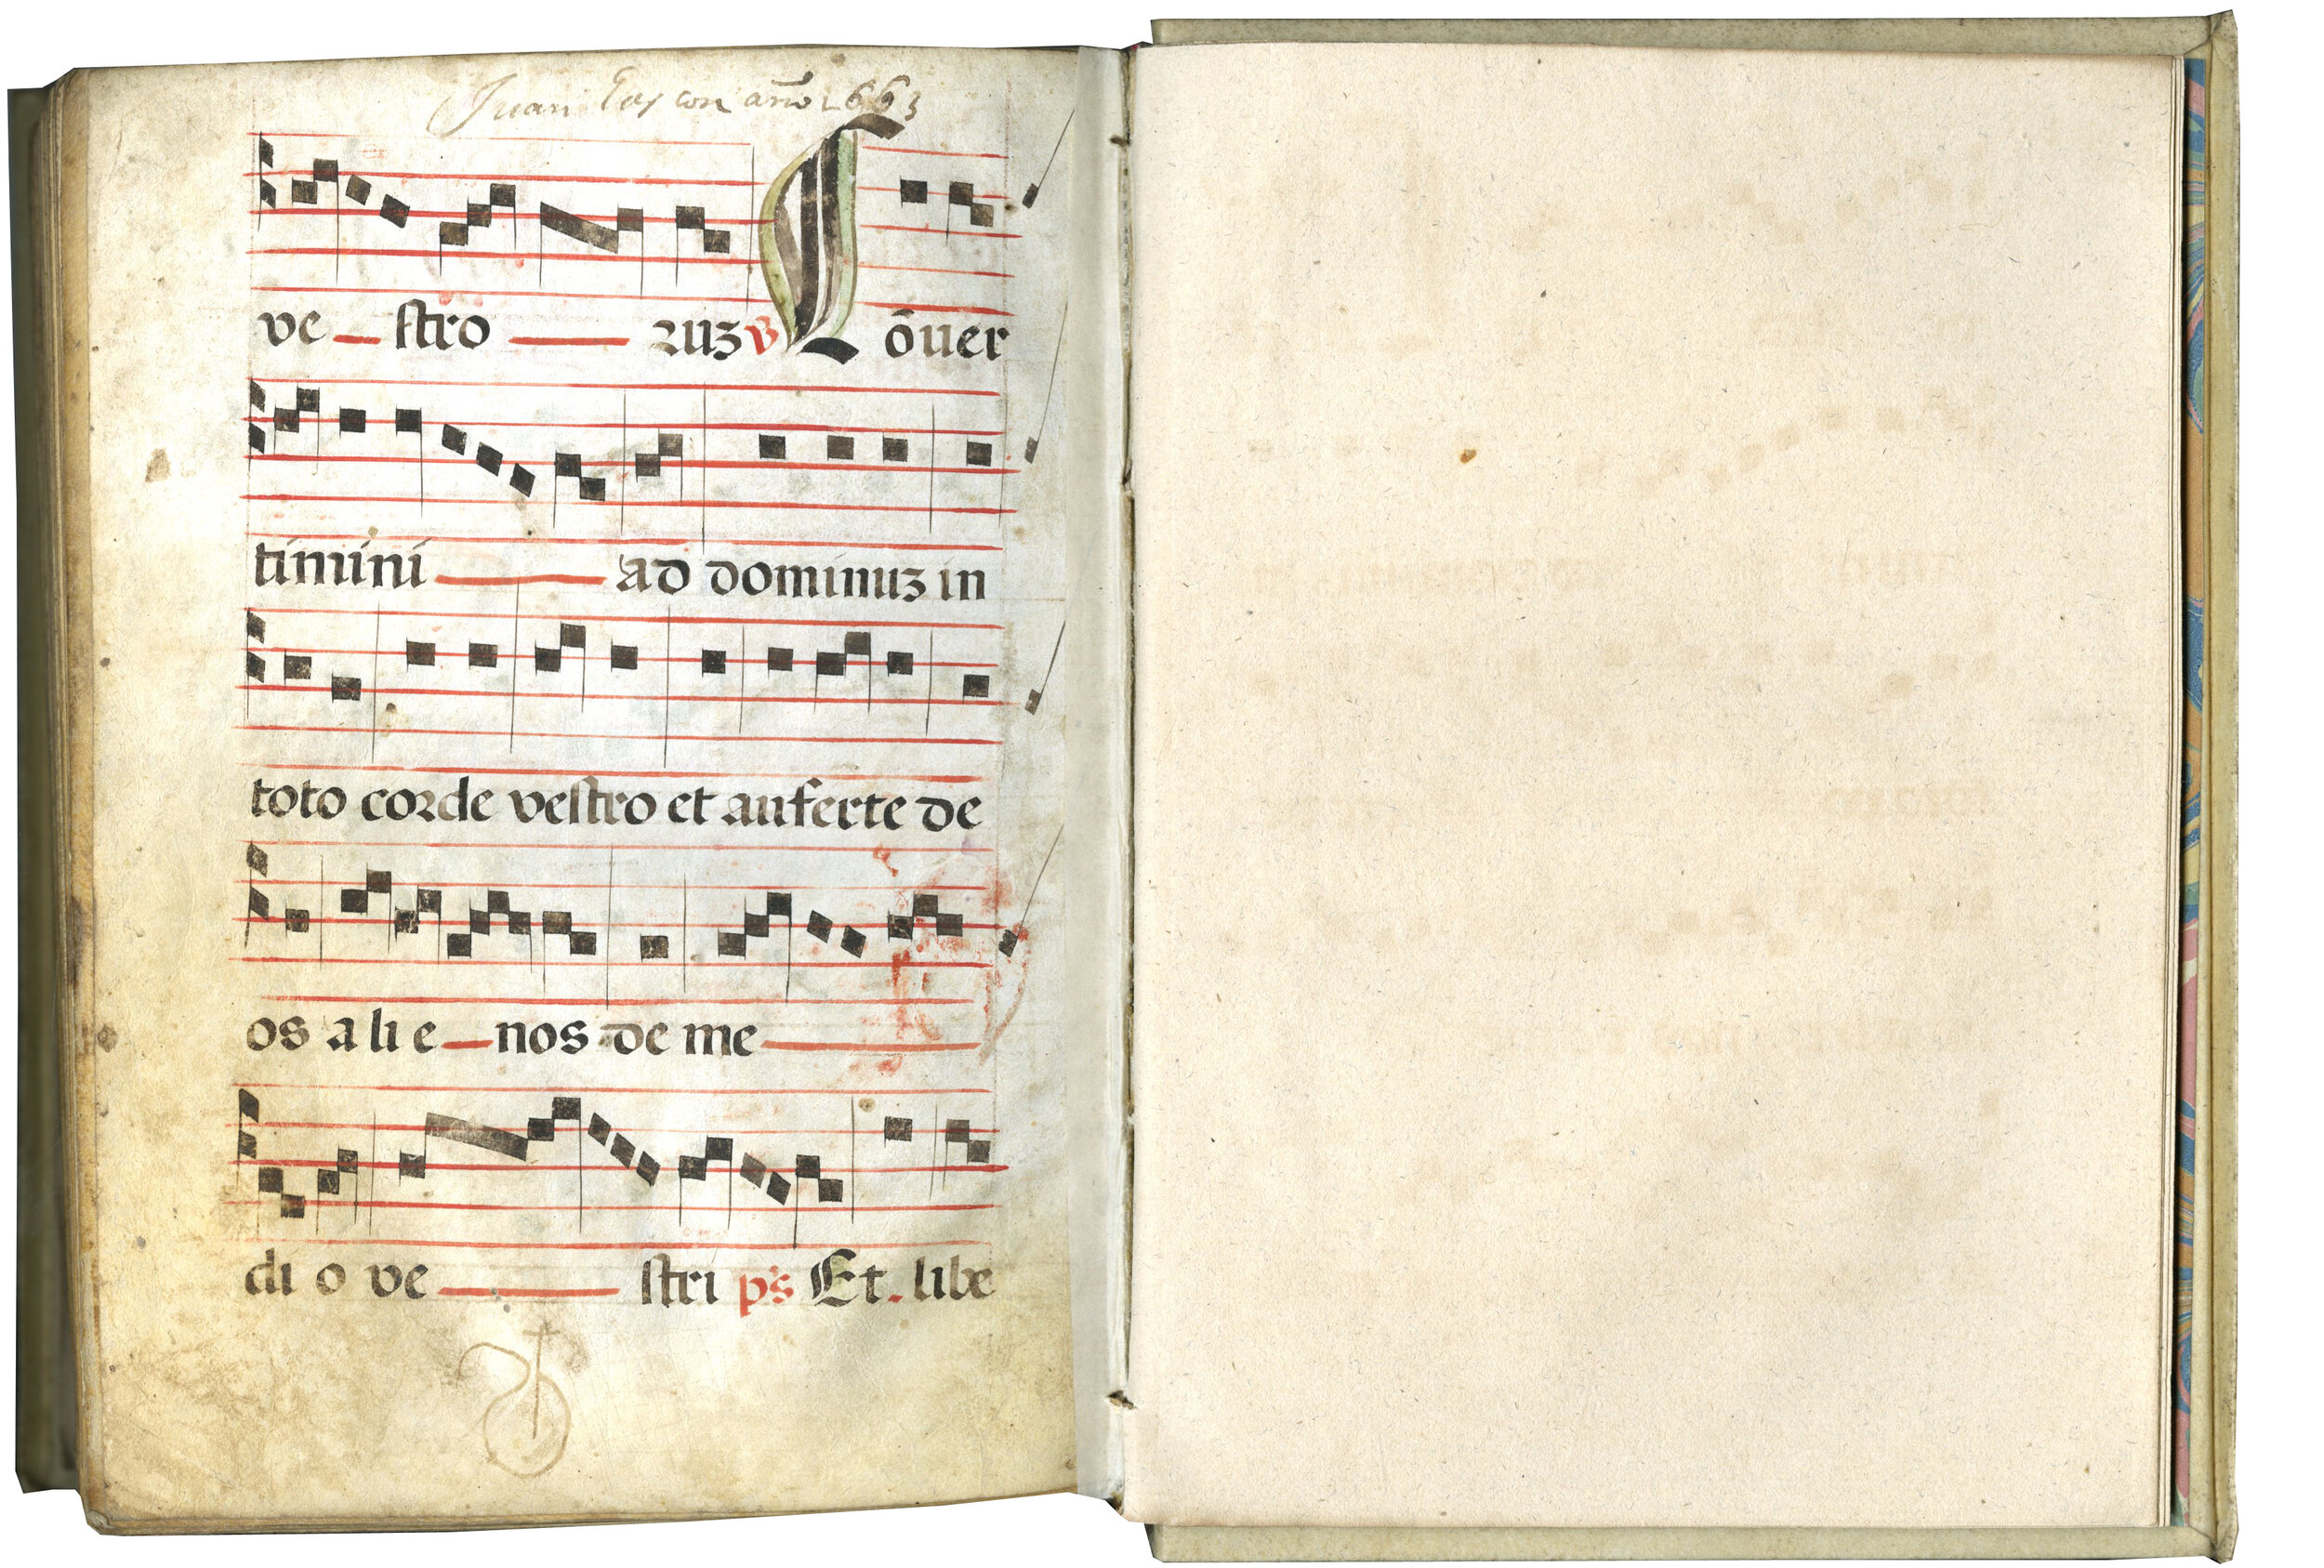 Juan año 1663
ve stro ꝛuʒ ℣ Cōuer
timini ad dominuʒ in
toto coꝛde veſtro et auferte de
os a li e nos de me
di o ve ſtri ps Et. libe